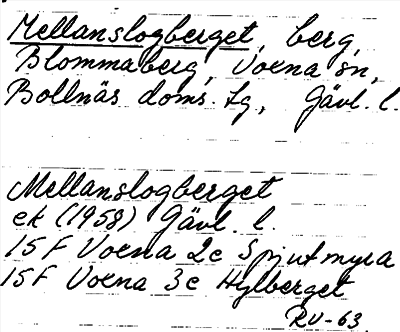 Mellanslogberget, berg,
Blommaberg, Voxna sn,
Bollnäs doms. tg, Gävl. l.
Mellanslogberget
ek (1958) Gävl. l.
15 F Voxna 2c Spjutmyra
15 F Voxna 3c Hylberget
RV-63.